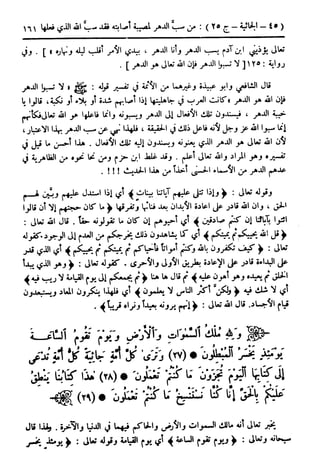 (٤٥ – الجاثية – ج ٢٥) : من سبَّ الدهر لمصيبة أصابته فقد سبَّ الله الذي فعلها ١٦١
تعالى يؤذيني ابن آدم يسب الدهر وأنا الدهر ، بيدي الأمر أقلب ليله ونهاره » ] . وفي
رواية : ١٢٥ [ لا تسبوا الدهر فإن الله تعالى هو الدهر ] .
قال الشافعي وأبو عبيدة وغيرهما من الأئمة في تفسير قوله : ﷺ « لا تسبوا الدهر
فإن الله هو الدهر » كانت العرب في جاهليتها إذا أصابهم شدة أو بلاء أو نكبة، قالوا يا
خيبة الدهر ، فيسندون تلك الأفعال إلى الدهر ويسبونه وإنما فاعلها هو الله تعالى فكأنهم
إنما سبوا الله عز وجل لأنه فاعل ذلك في الحقيقة ، فلهذا نهي عن سب الدهر بهذا الاعتبار،
لأن الله تعالى هو الدهر الذي يعنونه ويسندون إليه تلك الأفعال . هذا أحسن ما قيل في
تفسيره وهو المراد والله تعالى أعلم . وقد غلط ابن حزم ومن نحا نحوه من الظاهرية في
عدهم الدهر من الأسماء الحسنى أخذاً من هذا الحديث !!!.
وقوله تعالى : ﴿ وإذا تتلى عليهم آياتنا بينات ﴾ أي إذا استدل عليهم وبيّن لهم
الحق ، وان الله قادر على اعادة الأبدان بعد فنائها وتفرقها ﴿ ما كان حجتهم إلا أن قالوا
ائتوا بآبائنا إن كنتم صادقين ﴾ أي أحيوهم إن كان ما تقولونه حقاً. قال الله تعالى :
﴿ قل الله يحييكم ثم يميتكم ﴾ أي كما يشاهدون ذلك يخرجكم من العدم إلى الوجود، كقوله
تعالى : ﴿ كيف تكفرون بالله وكنتم أمواتاً فأحياكم ثم يميتكم ثم يحييكم ﴾ أي الذي قدر
على البداءة قادر على الإعادة بطريق الأولى والأحرى . كقوله تعالى : ﴿ وهو الذي يبدأ
الخلق ثم يعيده وهو أهون عليه ﴾ ثم قال ها هنا ﴿ ثم يجمعكم إلى يوم القيامة لا ريب فيه ﴾
أي لا شك فيه ﴿ ولكن أكثر الناس لا يعلمون ﴾ أي فلهذا ينكرون المعاد ويستبعدون
قيام الأجساد. قال الله تعالى : ﴿ إنهم يرونه بعيداً ونراه قريباً ﴾ .
﴿ وَلِلَّهِ مُلْكُ السَّمَوَاتِ وَالْأَرْضِ وَيَوْمَ تَقُومُ السَّاعَةُ
يَوْمَئِذٍ يَخْسَرُ الْمُبْطِلُونَ * (٢٧) وَتَرَىٰ كُلَّ أُمَّةٍ جَاثِيَةً كُلُّ أُمَّةٍ تُدْعَىٰ
إِلَىٰ كِتَابِهَا الْيَوْمَ تُجْزَوْنَ مَا كُنتُمْ تَعْمَلُونَ * (٢٨) هَٰذَا كِتَابُنَا يَنطِقُ
عَلَيْكُم بِالْحَقِّ إِنَّا كُنَّا نَسْتَنسِخُ مَا كُنتُمْ تَعْمَلُونَ * (٢٩) ﴾
يخبر تعالى أنه مالك السموات والأرض والحاكم فيهما في الدنيا والآخرة . ولهذا قال
سبحانه وتعالى : ﴿ ويوم تقوم الساعة ﴾ أي يوم القيامة وقوله تعالى : ﴿ يومئذ يخسر